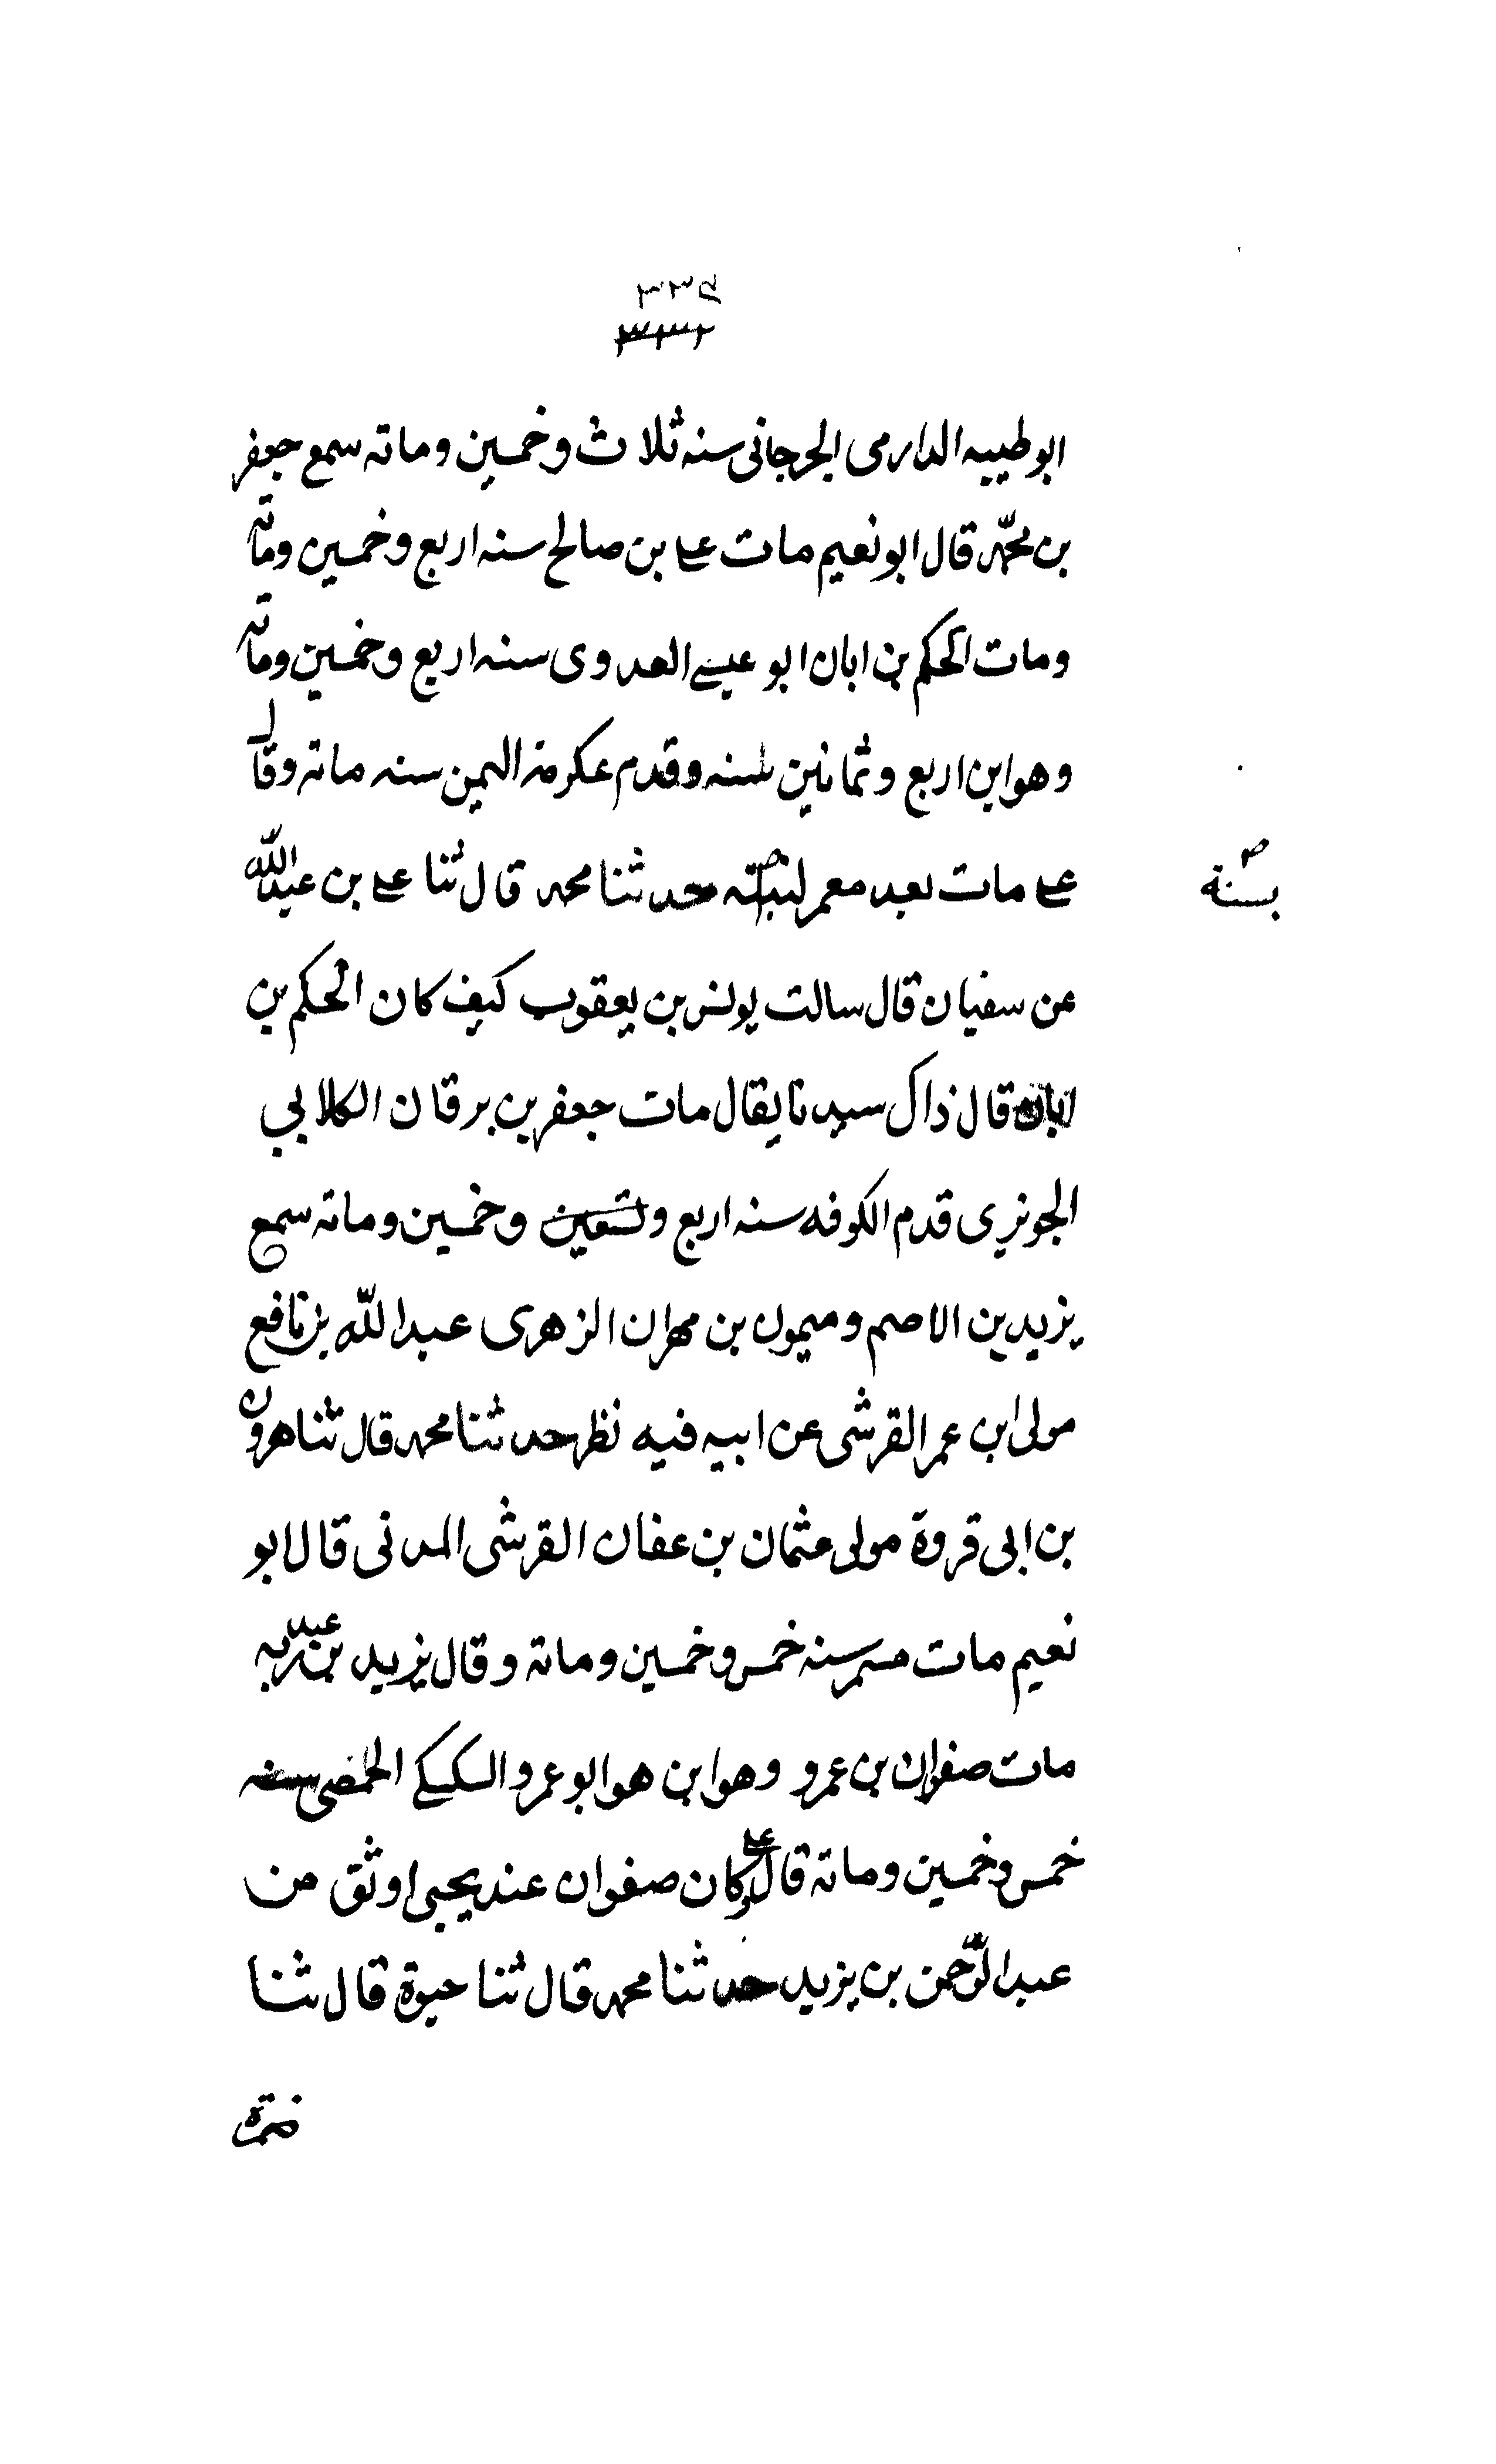 ٣٣٤
٣٣٢
ابو طيبه الدارمى الجرجانى سنه ثلاث وخمسين وماته سمع جعفر
بن محمّد قال ابو نعيم مات على بن صالح سنه اربع وخمسين وماته
ومات الحكم بن ابان ابو عيسى العدوى سنه اربع وخمسين وماته
وهو ابن اربع وثمانين سنه وقدم عكرمة اليمن سنه ماته وقال
على مات بعد معمر حدثنا محمد قال ثنا على بن عبدالله
بسنة
عن سفيان قال سالت يونس بن يعقوب كيف كان الحكم بن
ابان قال ذاك سيدنا يقال مات جعفر بن برقان الكلابي
الجوزرى قدم الكوفه سنه اربع وتسعين وخمسين وماته سمع
يزيد بن الاصم وميمون بن مهران الزهرى عبد الله بن نافع
مولى ابن عمر القرشى عن ابيه فيه نظر حدثنا محمد قال ثنا هرون
بن ابى قروة مولى عثمان بن عفان القرشى المدنى قال ابو
نعيم مات مسعر سنه خمس وخمسين وماتة وقال يزيد بن عبد ربه
مات صفوان بن عمرو وهو ابن هو ابو عمرو السكسكى الحمصى سنه
خمس وخمسين وماته قال على كان صفوان عند يحيى اوثق من
عبد الرّحمن بن يزيد حدثنا محمد قال ثنا حيوة قال ثنا
ضمرة